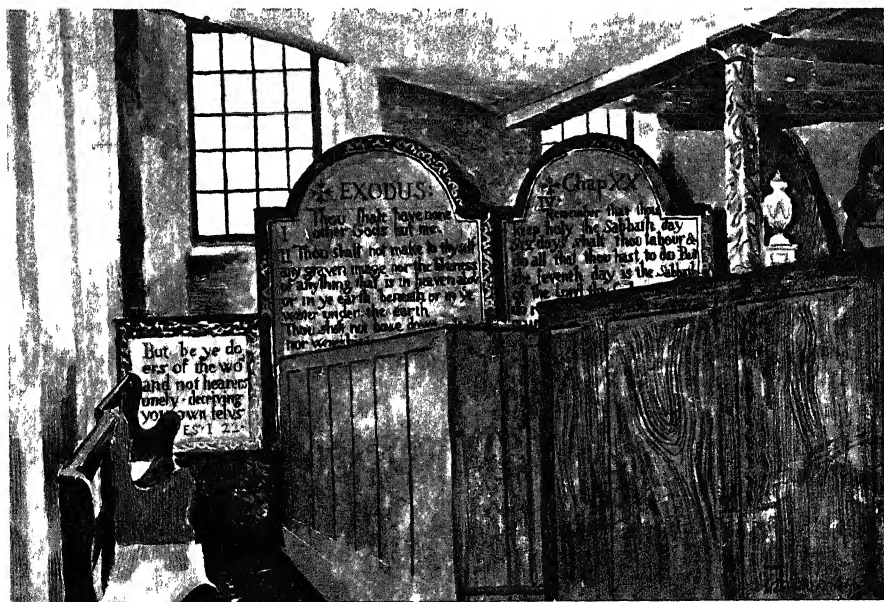 EXODUS:
Thou shalt have none
I other Gods but me.
II Thou shalt not make to thyself
any graven image nor the likeness
of anything that is in heaven above
or in ye earth beneath or in ye
water under the earth
Thou shalt not bowe down
nor
Chap XX
IV
Remember that thou
keep holy the Sabbath day
Six days shalt thou labour &
do all that thou hast to do But
the seventh day is the Sabbat
of the Lord
But be ye do
ers of the wo
and not hearers
onely · deceiving
your own selvs
ES· I 22·